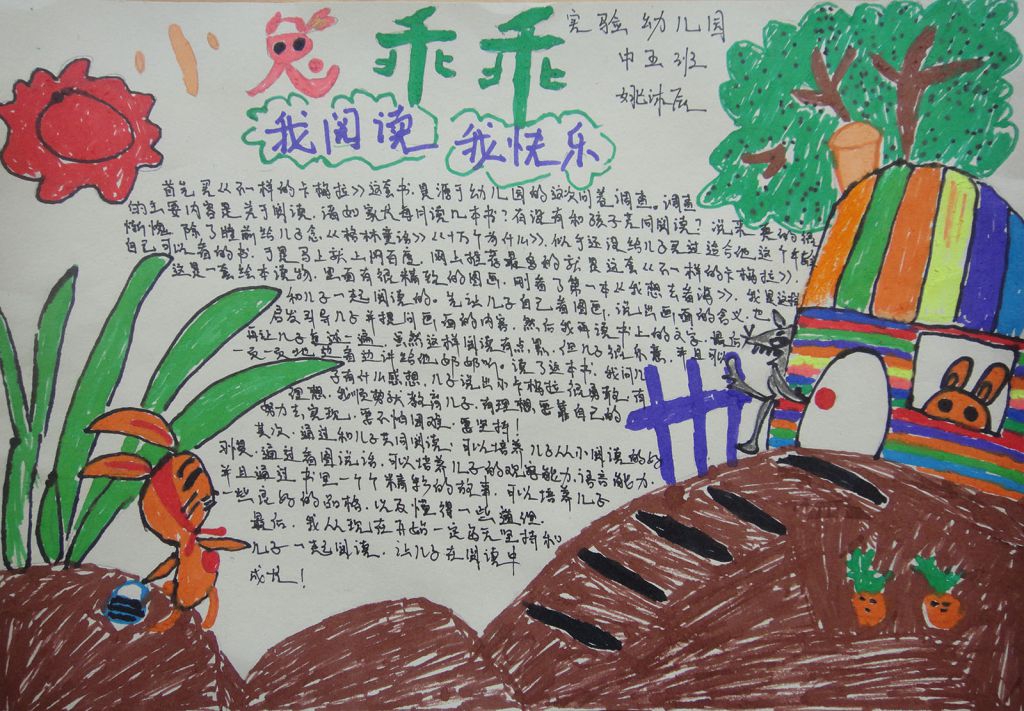 小兔乖乖
实验幼儿园
中五班
姚沐辰
我阅读 我快乐
首先买《不一样的卡梅拉》这套书,是源于幼儿园的这次问卷调查。调查
的主要内容是关于阅读,诸如家长每月读几本书?有没有和孩子共同阅读?说来
惭愧,除了睡前给儿子念《格林童话》《十万个为什么》,似乎还没给儿子买过适合他这个年龄
自己可以看的书,于是马上就上网百度,网上推荐最多的就是这套《不一样的卡梅拉》,
这是一套绘本读物,里面有很精致的图画,刚看了第一本《我想去看海》,我是这样
和儿子一起阅读的。先让儿子自己看图画,说出画面的含义,也
启发引导儿子并提问画面的内容,然后我再读书上的文字,最后
再让儿子复述一遍,虽然这样阅读有点累,但儿子很乐意,并且可以
一页一页地边看边讲给他奶奶听。读了这本书,我问儿
子有什么感想,儿子说出小卡梅拉很勇敢,有
理想,我顺势就教育儿子,有理想要靠自己的
努力去实现,要不怕困难,要坚持!
其次,通过和儿子共同阅读,可以培养儿子从小阅读的好
习惯,通过看图说话,可以培养儿子的观察能力,语言能力,
并且通过书里一个个精彩的故事,可以培养儿子
一些良好的品格,以及懂得一些道理。
最后,我从现在开始一定每天坚持和
儿子一起阅读,让儿子在阅读中
成长!